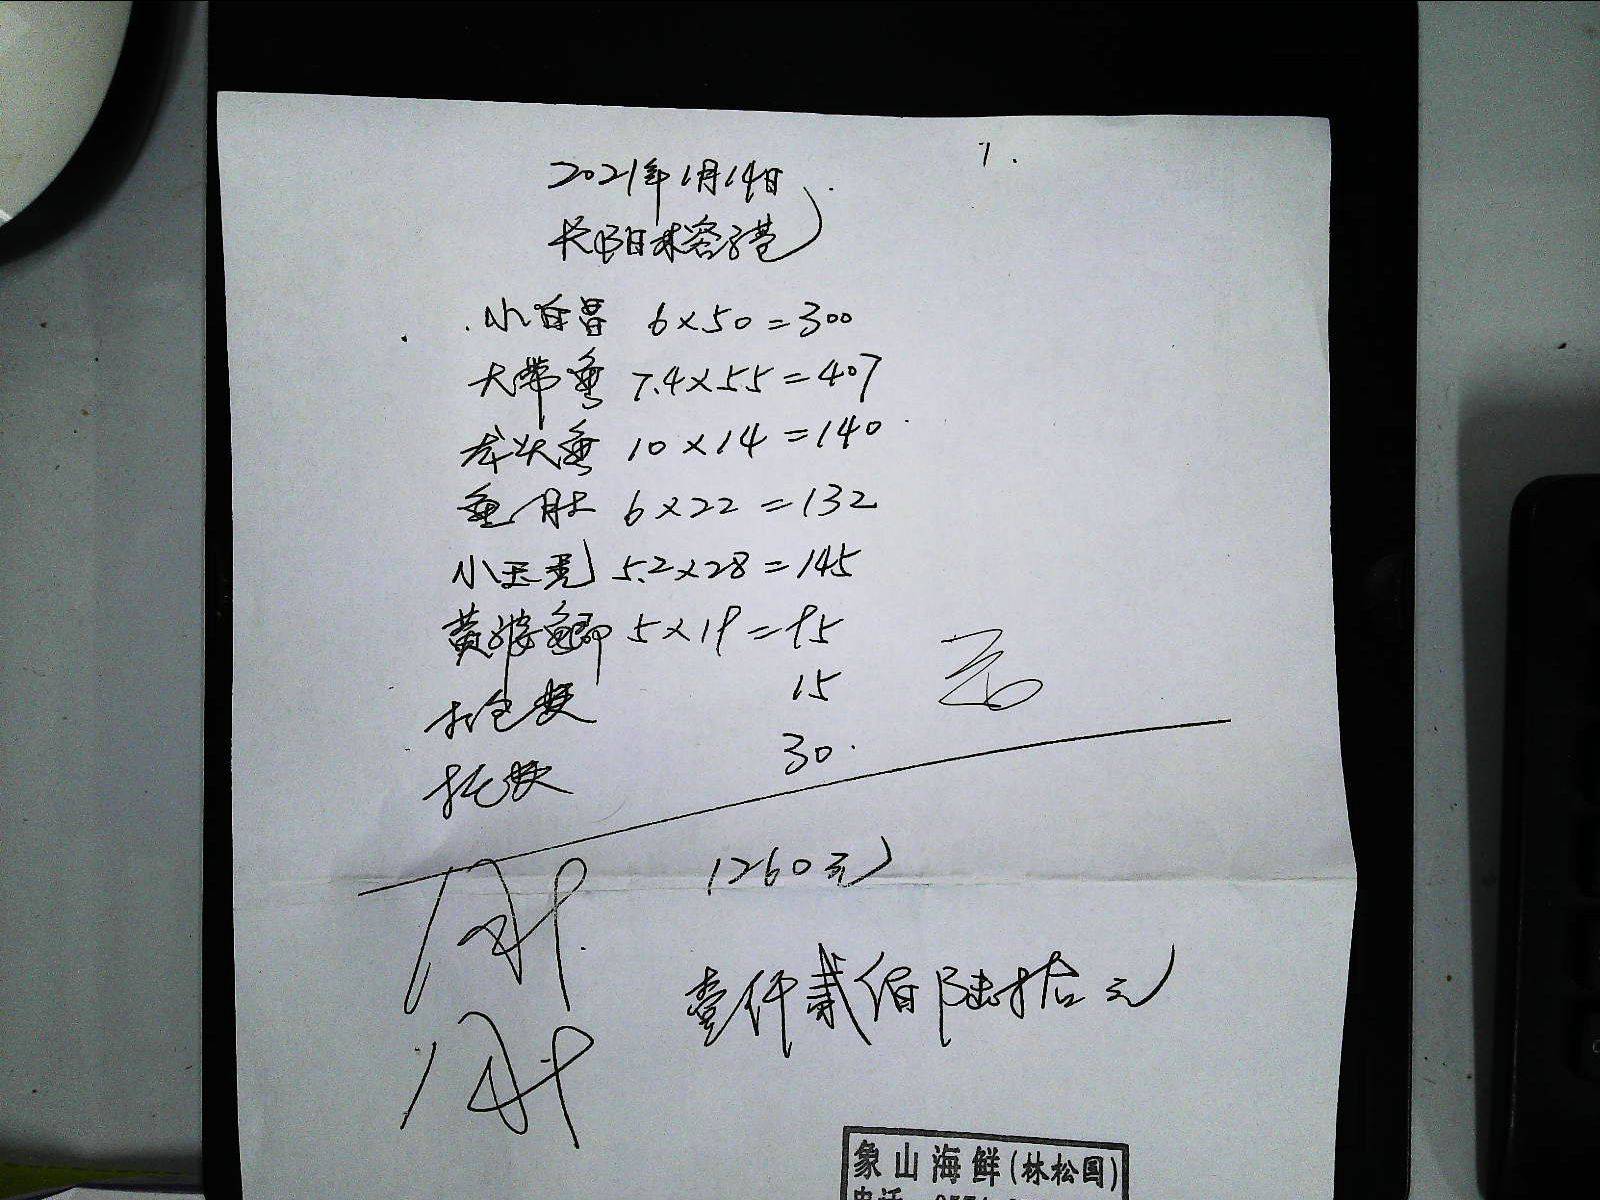 1.
2021年1月14日
长阳林容港
小白昌 6×50=300
大带鱼 7.4×55=407
龙头鱼 10×14=140
鱼肚 6×22=132
小玉秃 5.2×28=145
黄婆鲫 5×19=95
打包费 15
托费 30.
1260元
壹仟贰佰陆拾元
象山海鲜(林松国)
电话